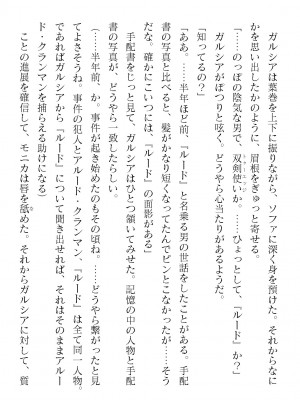 ガルシアは葉巻を上下に振りながら、ソファに深く身を預けた。それからなに
かを思い出したかのように、眉根をぎゅっと寄せる。
「……のっぽの陰気な男で、双剣使いか。……ひょっとして、「ルード」か？」
ガルシアがぽつりと呟く。どうやら心当たりがあるようだ。
「知ってるの？」
「ああ。……半年ほど前、「ルード」と名乗る男の世話をしたことがある。手配
書の写真と比べると、髪がかなり短くなってたんでピンとこなかったが……そう
だな。確かにこいつには、「ルード」の面影がある」
手配書をじっと見て、ガルシアはひとつ頷いてみせた。記憶の中の人物と手配
書の写真が、どうやら一致したらしい。
（……半年前、か。事件が起き始めたのもその頃ね。……どうやら繋がったと見
てよさそうね。事件の犯人とアルード・クランマン、「ルード」は全て同一人物。
であればガルシアから「ルード」について聞き出せれば、それはそのままアルー
ド・クランマンを捕らえる助けになる）
ことの進展を確信して、モニカは唇を舐めた。それからガルシアに対して、質